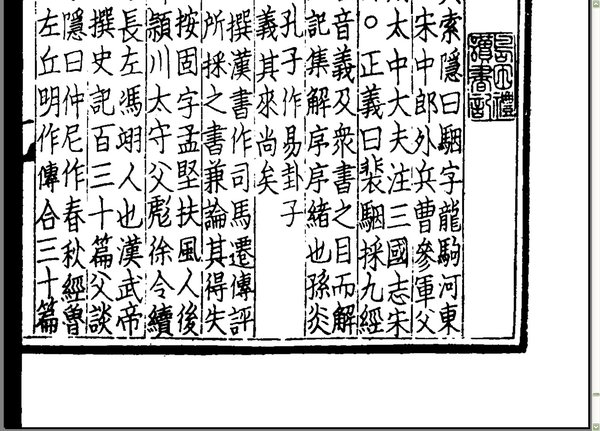 索隱曰駰字龍駒河東
宋中郎外兵曹參軍父
太中大夫注三國志宋
○正義曰裴駰採九經
音義及衆書之目而解
記集解序序緒也孫炎
孔子作易卦子
義其來尚矣
撰漢書作司馬遷傳評
所採之書兼論其得失
按固字孟堅扶風人後
潁川太守父彪徐令續
長左馮翊人也漢武帝
撰史記百三十篇父談
隱曰仲尼作春秋經魯
左丘明作傳合三十篇